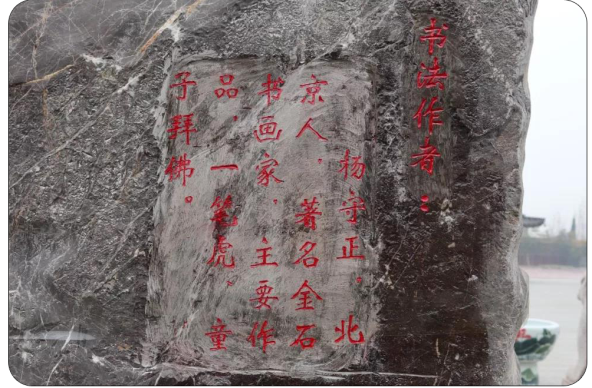 书法作者：
杨守正。北
京人，著名金石
书画家，主要作
品，一笔虎。童
子拜佛。